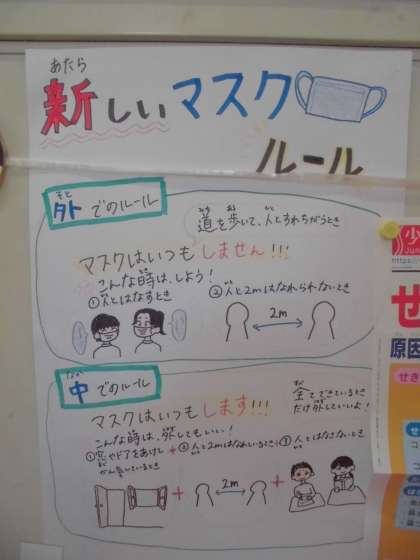 あたら
新しいマスク
ルール
そと
外でのルール
みち ある ひと
道を歩いて、人とすれちがうとき
マスクはいつもしません!!!
こんな時は、しよう!
①人とはなすとき
②人と2mはなれられないとき
2m
なか
中でのルール
マスクはいつもします!!!
全てできているとき
だけ外していいよ!
こんな時は、外してもいい!
①窓やドアをあけ
かん気しているとき
+②人と2mはなれているとき
+③人とはなさないとき
+
2m
+
少
Jun
https://
せ
原因
せき